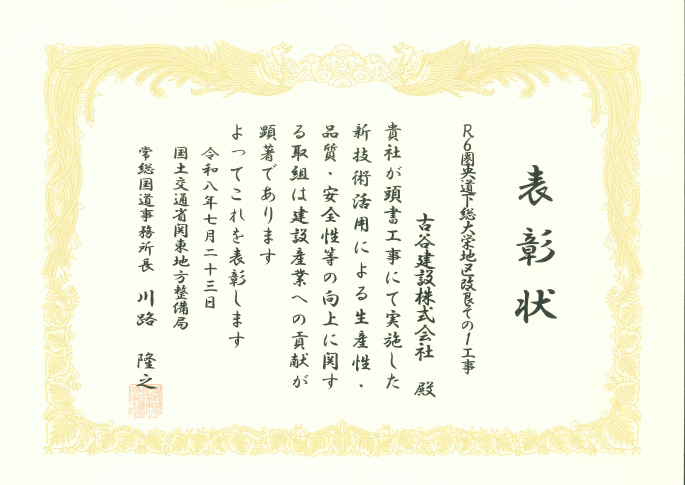 表彰状
R6圏央道下総大栄地区改良その1工事
古谷建設株式会社 殿
貴社が頭書工事にて実施した
新技術活用による生産性・
品質・安全性等の向上に関す
る取組は建設産業への貢献が
顕著であります
よってこれを表彰します
令和八年七月二十三日
国土交通省関東地方整備局
常総国道事務所長 川路 隆之